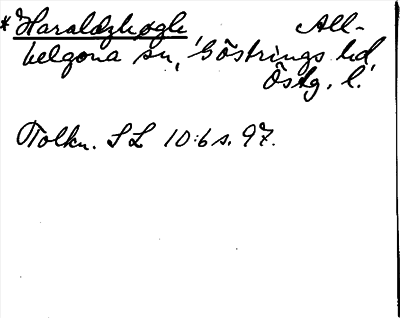 *Haraldzhøghe, All-
helgona sn, Göstrings hd,
Östg. l.
Tolkn. SL 10:6 s. 97.